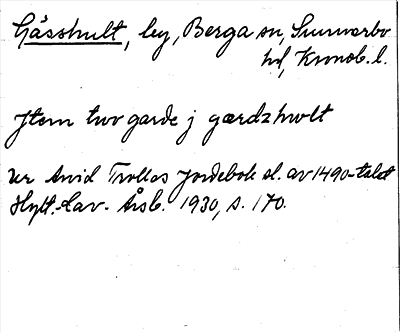 Gåsshult, by, Berga sn, Sunnerbo
hd, Kronob. l.
Jtem two garde j gærdzhwlt
Ur Arvid Trolles Jordebok sl. av 1490-talet
Hylt.-Cav. Årsb. 1930, s. 170.